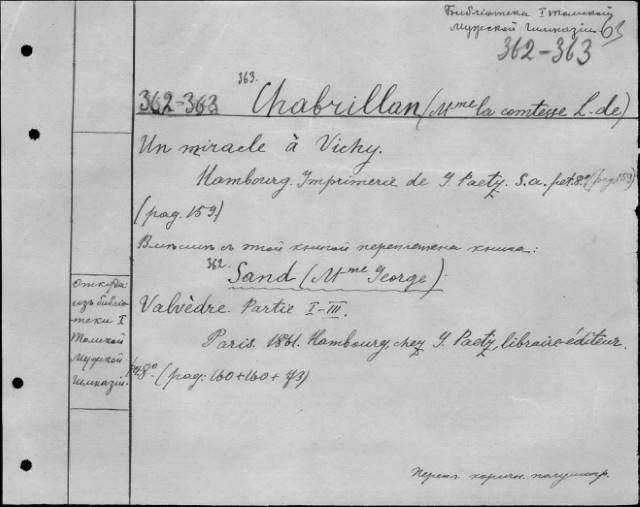 Библіотека I Томской
Мужской Гимназіи. 63
362-363
363.
362-363 Chabrillan (Mme la comtesse L. de)
Un miracle à Vichy.
Hambourg. Imprimerie de I Paetz. S. a. pet. 8º (pag. 159)
(pag. 159)
Вмѣстѣ съ этой книгой переплетена книга:
362.
Sand (Mme George).
Valvèdre. Partie I-III.
Paris. 1861. Hambourg, chez I. Paetz, libraire-éditeur.
8º (pag: 160+160+73)
Откуда:
изъ библіо-
теки I
Томской
Мужской
Гимназіи.
Перепл. коричн. полушагр.